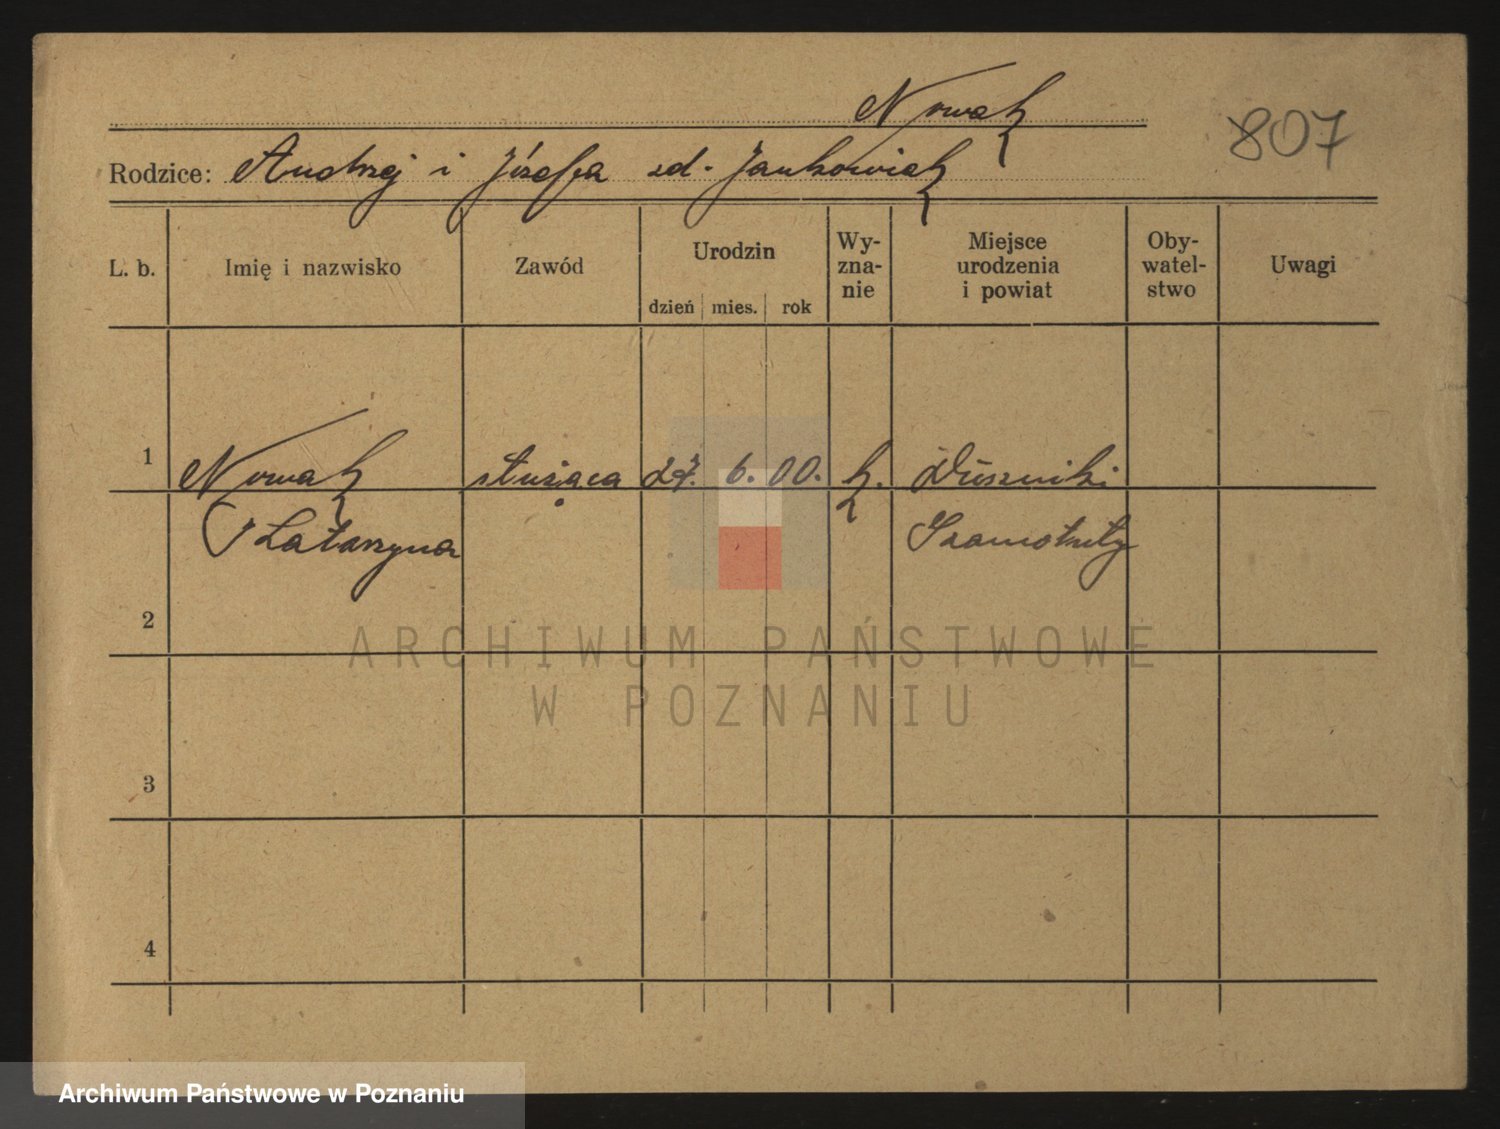 Nowak
807
Rodzice: Andrzej i Józefa zd. Jankowiak
L. b.
Imię i nazwisko
Zawód
Urodzin
dzień mies. rok
Wy-
zna-
nie
Miejsce
urodzenia
i powiat
Oby-
watel-
stwo
Uwagi
1 Nowak służąca 27. 6. 00. k. Duszniki
Katarzyna Szamotuły
2
3
4
ARCHIWUM PAŃSTWOWE
W POZNANIU
Archiwum Państwowe w Poznaniu